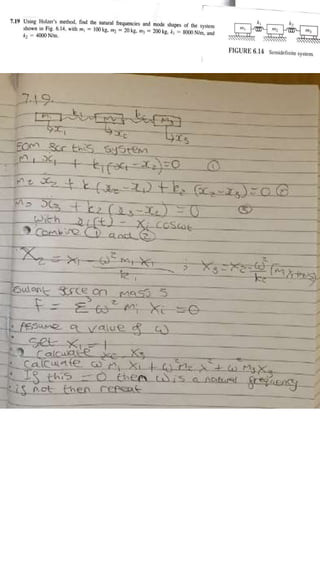 7.19 Using Holzer's method, find the natural frequencies and mode shapes of the system
shown in Fig. 6.14, with m₁ = 100 kg, m₂ = 20 kg, m₃ = 200 kg, k₁ = 8000 N/m, and
k₂ = 4000 N/m.
k₁ k₂
m₁ m₂ m₃
FIGURE 6.14 Semidefinite system.
7.19.
m₁ k₁ m₂ k₂ m₃
x₁ x₂ x₃
EOM for this system
m₁ ẍ₁ + k₁(x₁-x₂)=0 ①
m₂ ẍ₂ + k₁(x₂-x₁) + k₂ (x₂-x₃)=0 ②
m₃ ẍ₃ + k₂ (x₃-x₂) = 0 ③
with xᵢ(t) = Xᵢ cosωt
Combine ① and ②
X₂ = X₁ - ω² m₁ X₁ / k₁ ; X₃ = X₂ - ω² / k₂ (m₁X₁+
force on mass 3
F = Σ³ ω² mᵢ Xᵢ = 0
Assume a value of ω
Set X₁ = 1
Calcuate X₂ X₃
Calcuate ω²m₁ X₁ + ω²m₂ X₂ + ω²m₃X₃
If this = 0 then ω is a natural frequency
if not then repeat